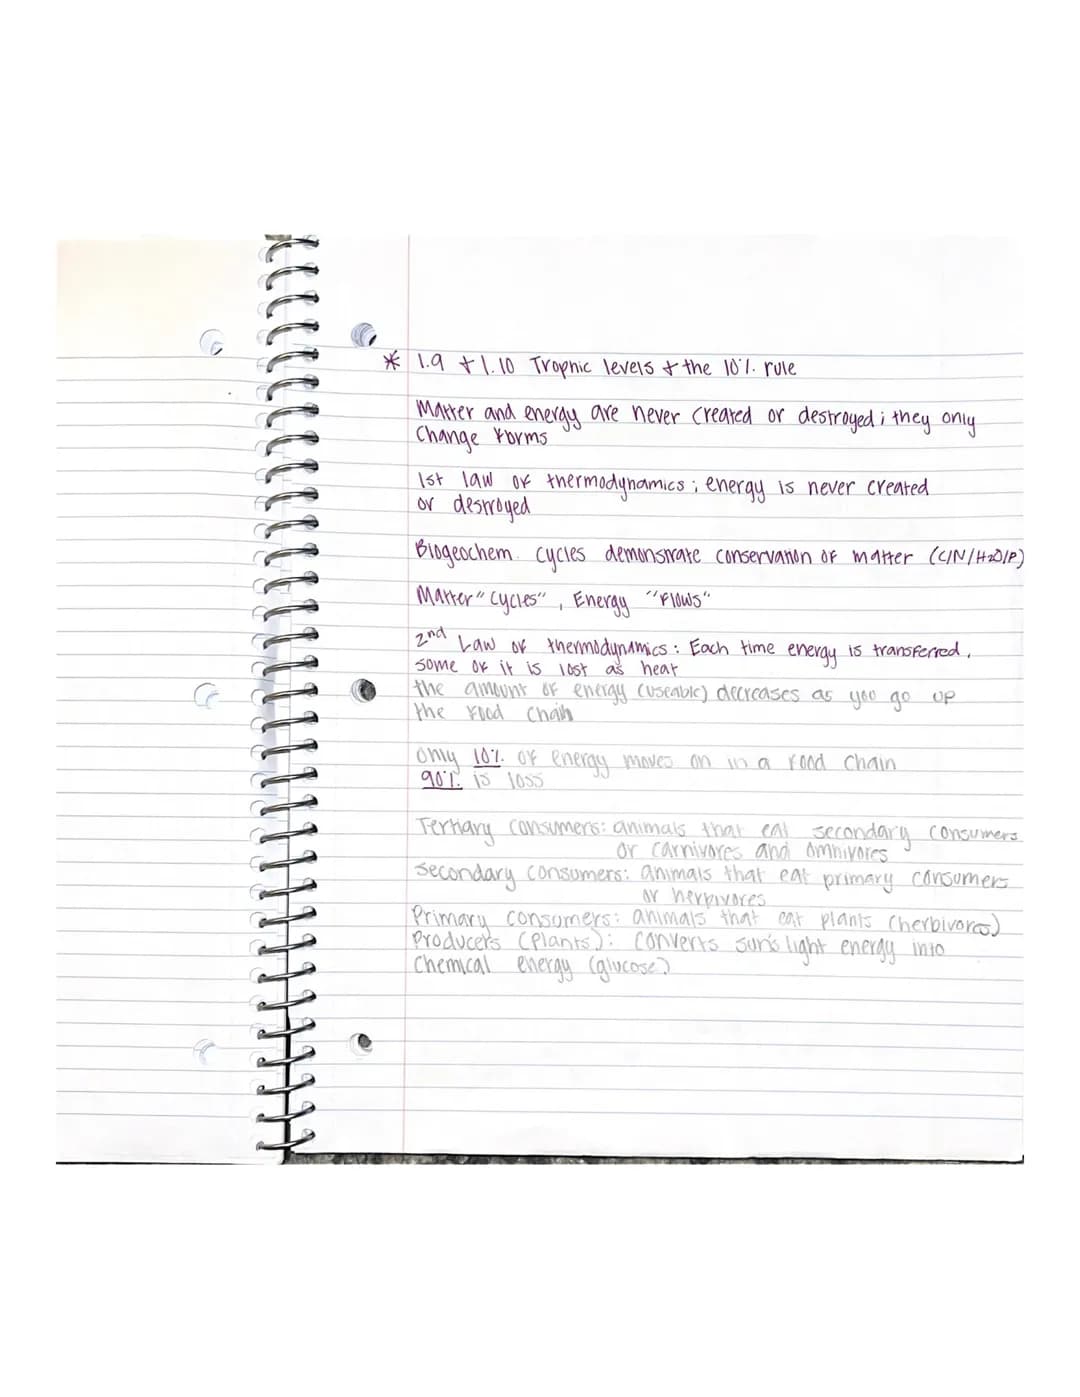 * 1.9 + 1.10 Trophic levels + the 10% rule
Matter and energy are never created or destroyed; they only
Change forms
1st law of thermodynamics; energy is never created
or destroyed
Biogeochem. cycles demonstrate conservation of matter (C/N/H2O/P)
Matter "cycles", Energy "Flows"
2nd Law of thermodynamics: Each time energy is transferred,
some of it is lost as heat
the amount of energy (useable) decreases as you go up
the food chain
only 10% of energy moves on in a food chain
90% is loss
Tertiary consumers: animals that eat secondary consumers
or carnivores and omnivores
secondary consumers: animals that eat primary consumers
or herbivores
Primary consumers: animals that eat plants (herbivores)
Producers (Plants): converts sun's light energy into
chemical energy (glucose)